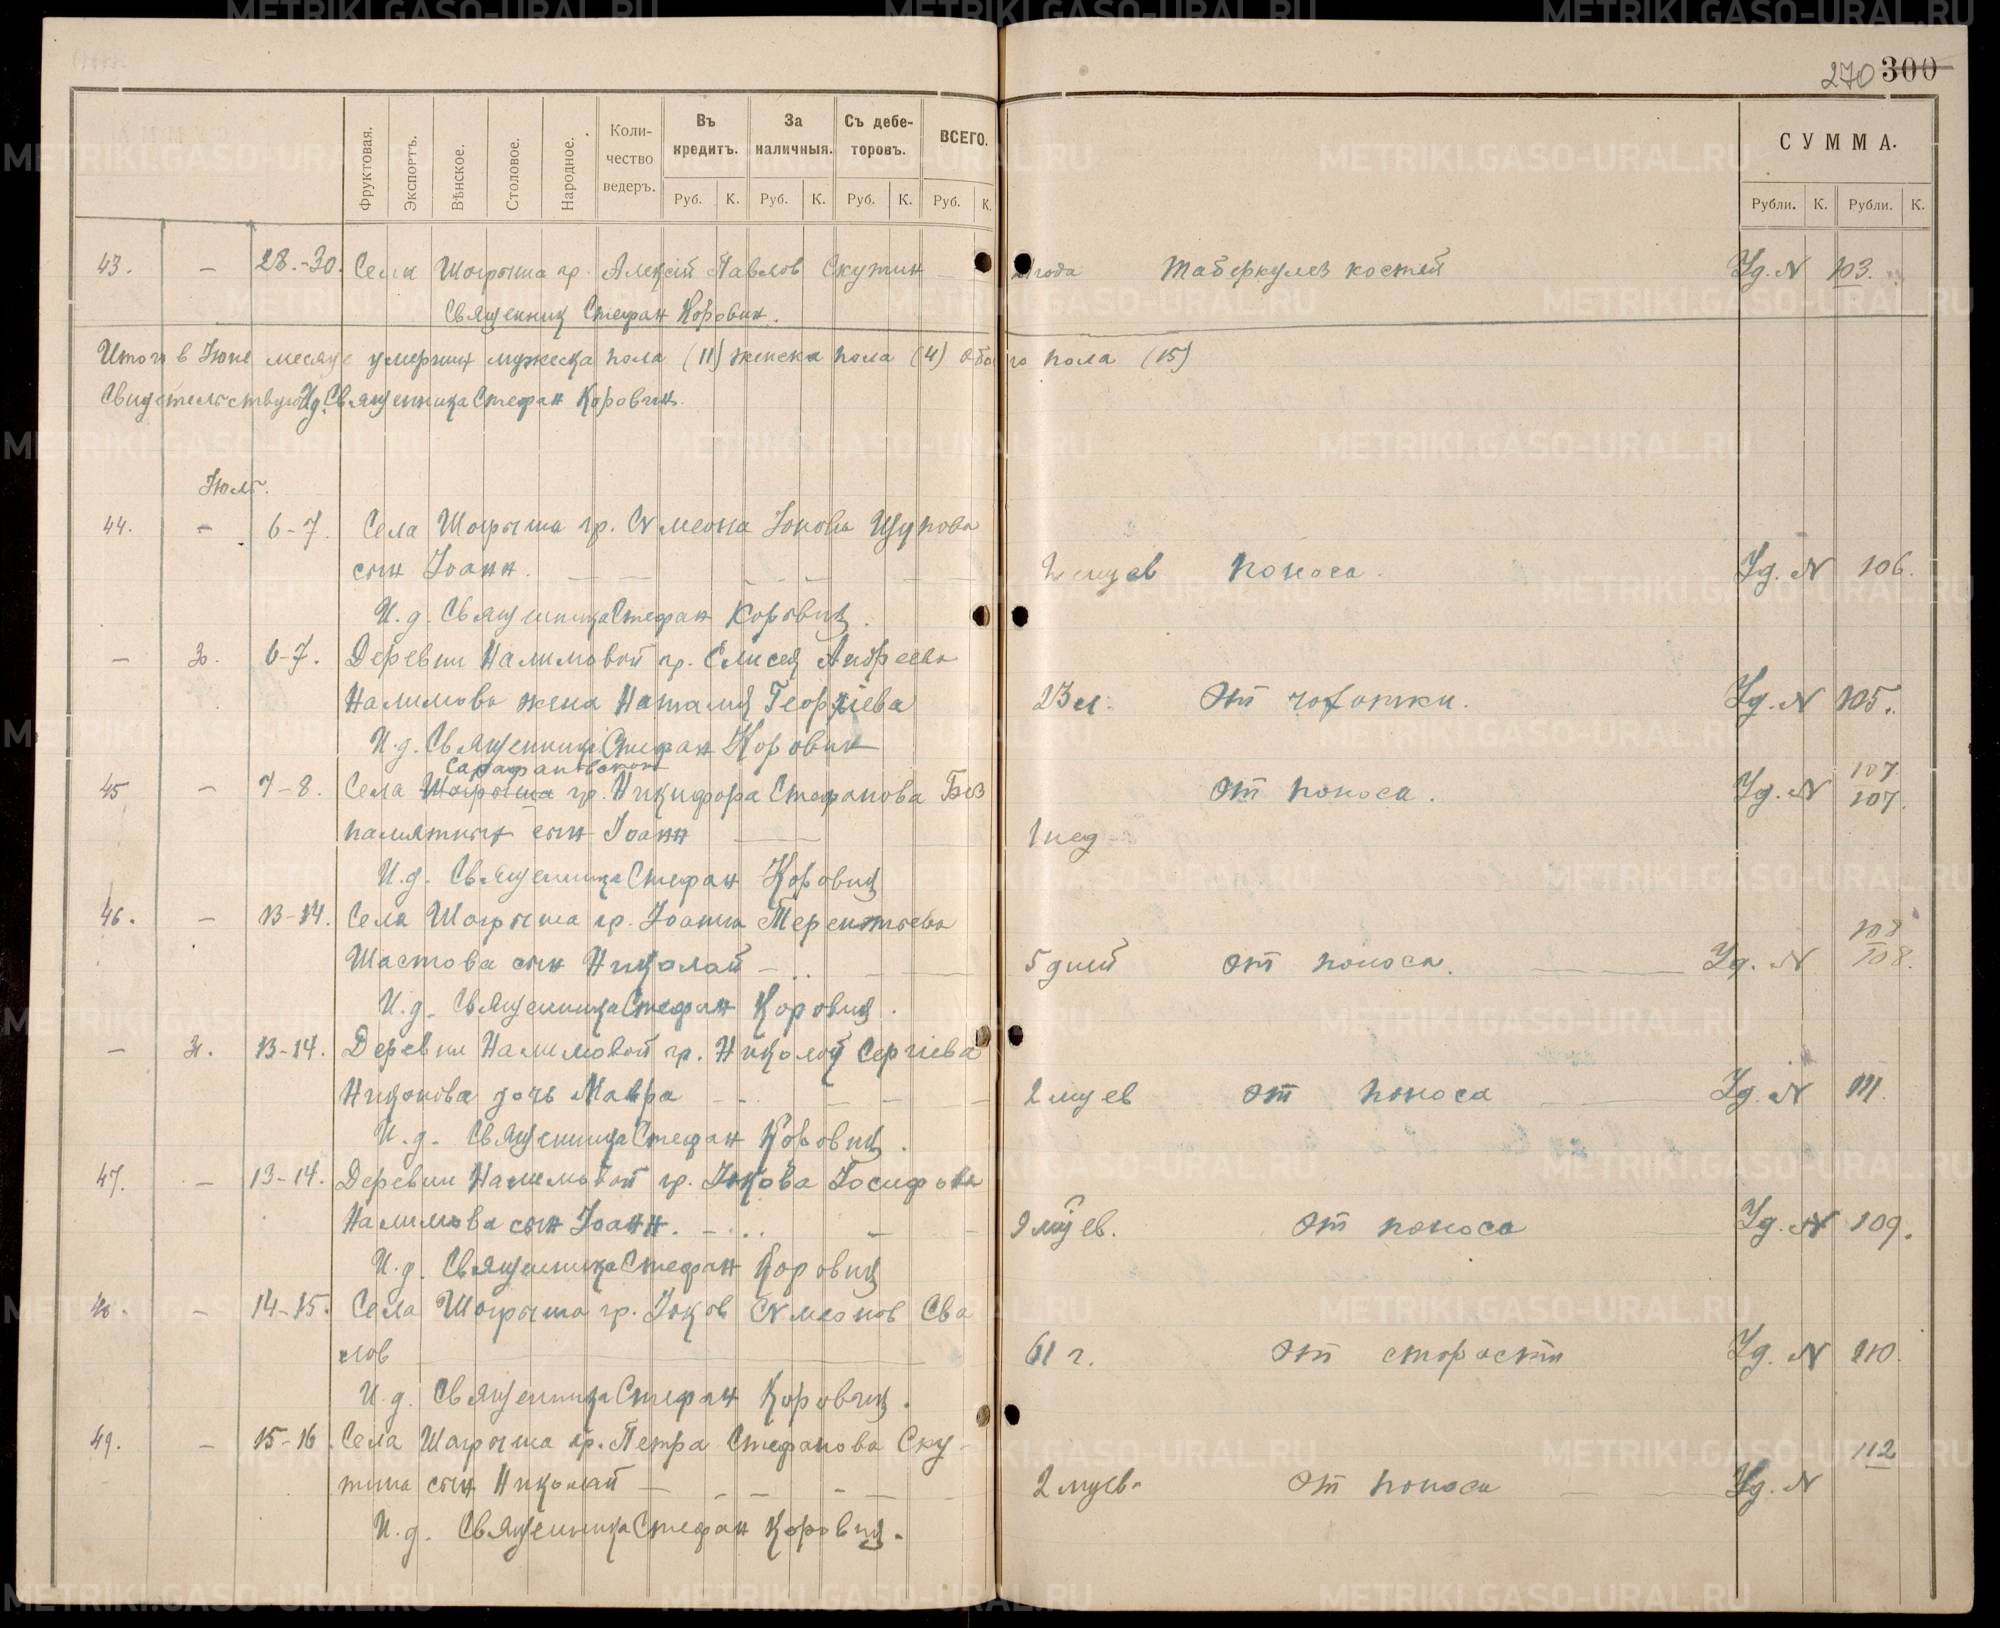 270 300
Фруктовая. Экспортъ. Вѣнское. Столовое. Народное. Коли-чество ведеръ. Въ кредитъ. За наличныя. Съ дебе-торовъ. ВСЕГО. СУММА.
Руб. К. Руб. К. Руб. К. Руб. К. Рубли. К. Рубли. К.
43. — 28.-30. Села Шогрыша гр. Алексій Павлов Скутин года Таберкулез костей Уд. N 103.
Священник Стефан Коровин.
Итого в Июне месяце умерших мужеска пола (11) женска пола (4) обоего пола (15)
Свидетельствую И.д. Священника Стефан Коровин.
Июль.
44. — 6-7. Села Шогрыша гр. Симеона Іонова Щупова
сын Іоанн. 2 месцев поноса. Уд. N 106.
И.д. Священника Стефан Коровин.
— 30. 6-7. Деревни Налимовой гр. Елисея Андреева
Налимова жена Наталия Георгіева 23 л. От чахотки. Уд. N 105.
И.д. Священника Стефан Коровин
Сарафановском
45 — 7-8. Села Шогрыша гр. Никифора Стефанова Без От поноса. Уд. N 107 107.
памятных сын Іоанн 1 нед
И.д. Священника Стефан Коровин
46. — 13-14. Села Шогрыша гр. Іоанна Терентьева
Шастова сын Николай 5 дней от поноса. Уд. N 108 108.
И.д. Священника Стефан Коровин.
— 31. 13-14. Деревни Налимовой гр. Николай Сергіева
Никонова дочь Мавра 2 мцев От поноса Уд. N 111.
И.д. Священника Стефан Коровин.
47. — 13-14. Деревни Налимовой гр. Іакова Іосифова
Налимова сын Іоанн. 9 мцев. От поноса Уд. N 109.
И.д. Священника Стефан Коровин
48. — 14-15. Села Шогрыша гр. Іаков Симеонов Сва
лов 61 г. От старости Уд. N 110.
И.д. Священника Стефан Коровин.
49. — 15-16. Села Шогрыша гр. Петра Стефанова Ску-
тина сын Николай 2 мцев. От поноса Уд. N 112
И.д. Священника Стефан Коровин.
METRIKI.GASO-URAL.RU